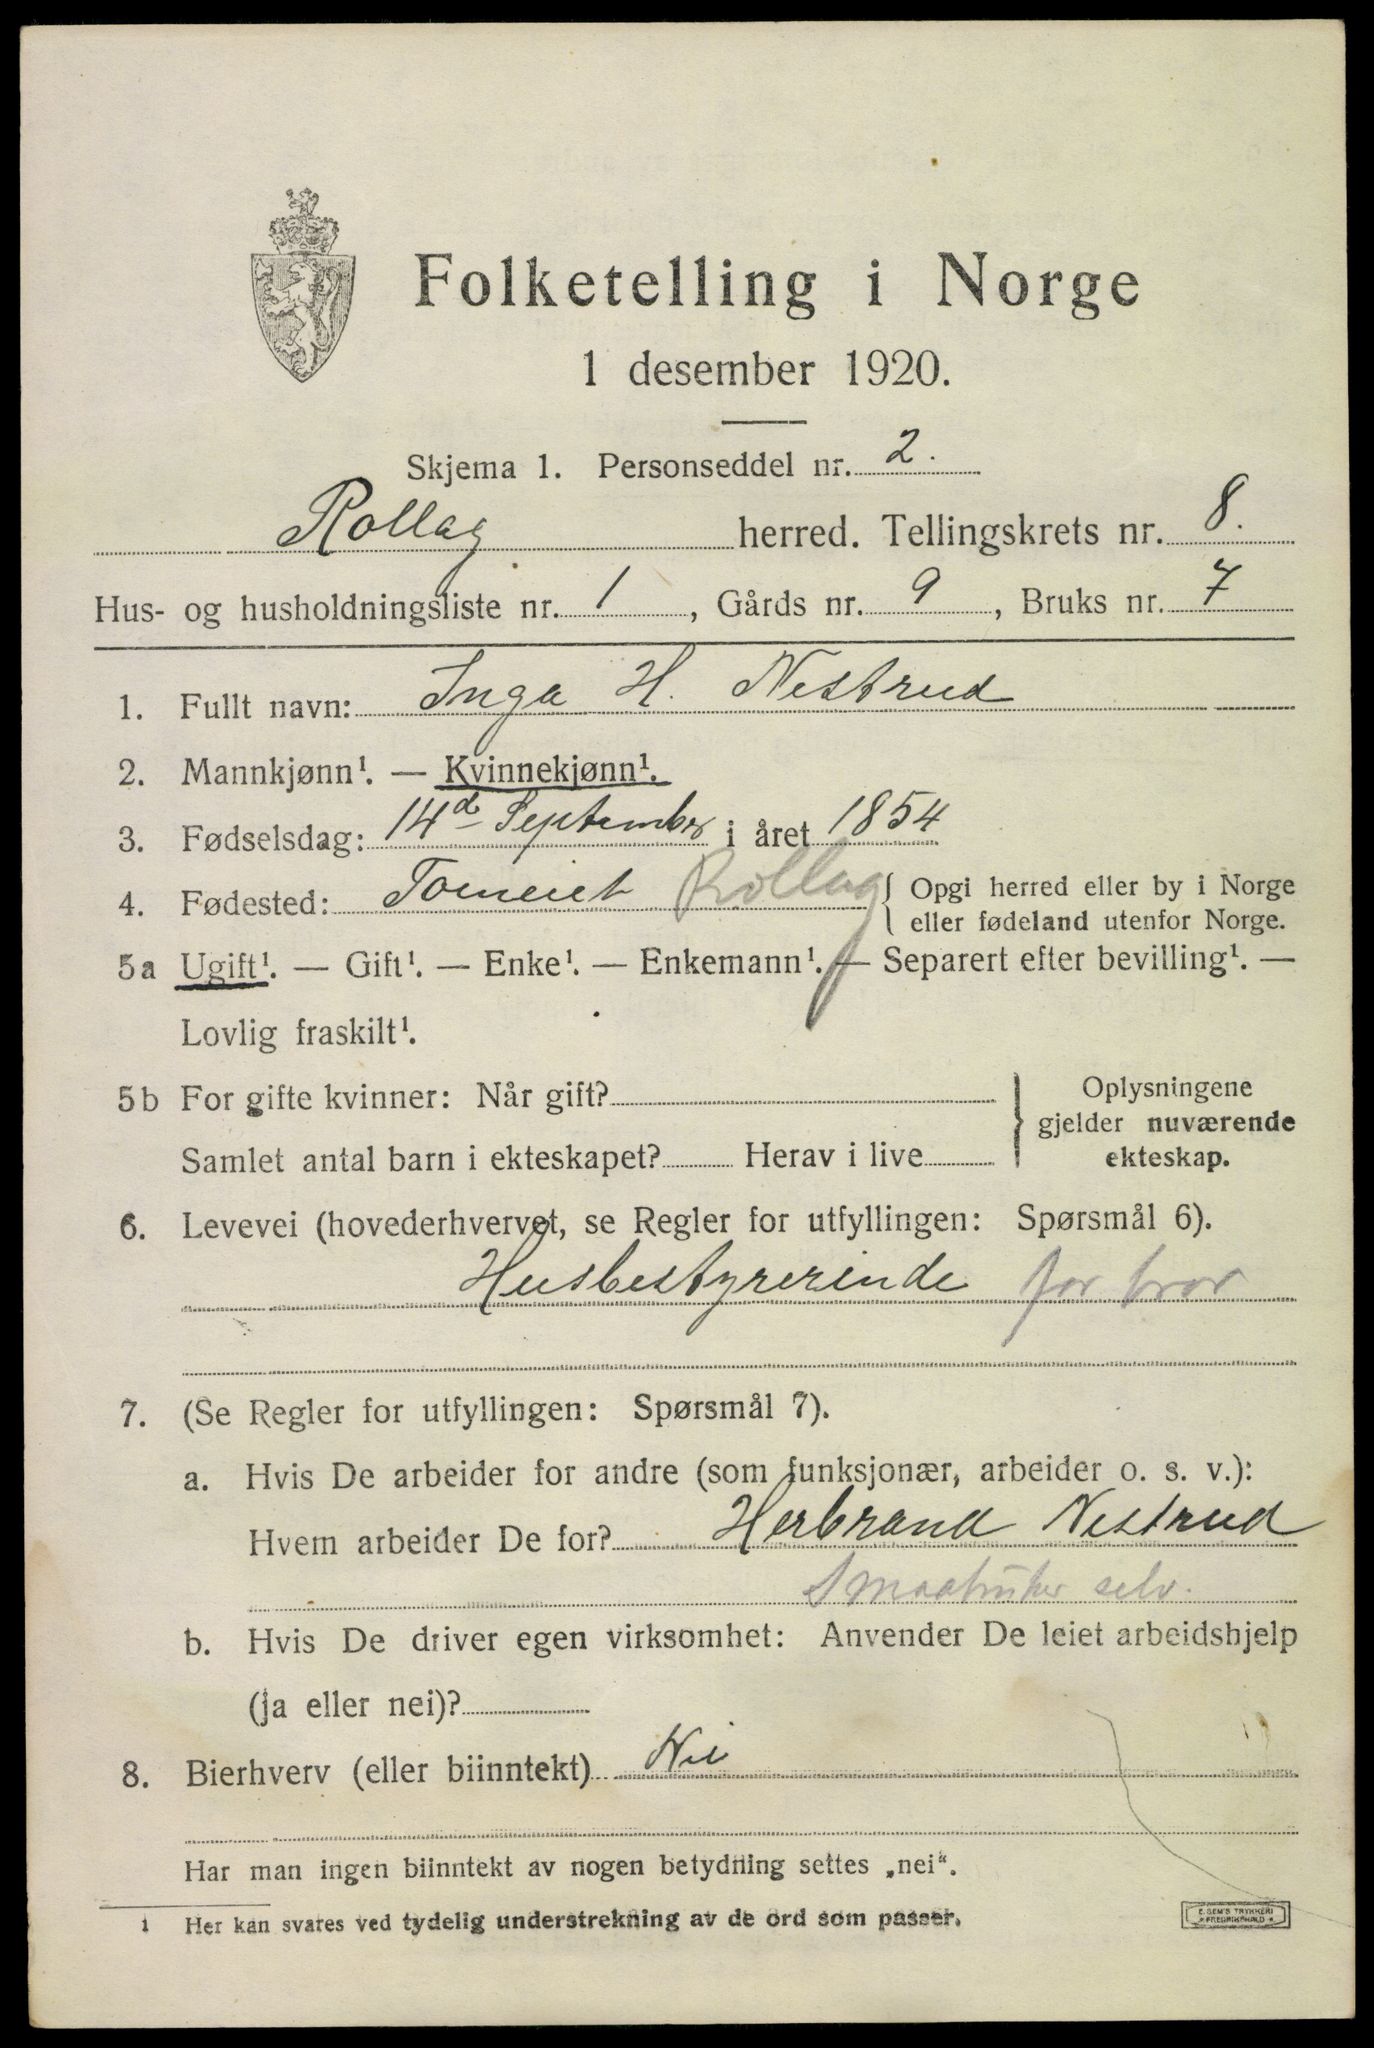 Folketelling i Norge
1 desember 1920.
Skjema 1. Personseddel nr. 2.
Rollag herred. Tellingskrets nr. 8.
Hus- og husholdningsliste nr. 1, Gårds nr. 9, Bruks nr. 7
1. Fullt navn: Inga H. Nestrud
2. Mannkjønn¹. — Kvinnekjønn¹.
3. Fødselsdag: 14d September i året 1854
4. Fødested: Rollag { Opgi herred eller by i Norge
eller fødeland utenfor Norge.
5a Ugift¹. — Gift¹. — Enke¹. — Enkemann¹. — Separert efter bevilling¹. —
Lovlig fraskilt¹.
5b For gifte kvinner: Når gift? Oplysningene
gjelder nuværende
Samlet antal barn i ekteskapet? Herav i live ekteskap.
6. Levevei (hovederhvervet, se Regler for utfyllingen: Spørsmål 6).
Husbestyrerinde for bror
7. (Se Regler for utfyllingen: Spørsmål 7).
a. Hvis De arbeider for andre (som funksjonær, arbeider o. s. v.):
Hvem arbeider De for? Herbrand Nestrud
Smaabruker selv.
b. Hvis De driver egen virksomhet: Anvender De leiet arbeidshjelp
(ja eller nei)?
8. Bierhverv (eller biinntekt) Nei
Har man ingen biinntekt av nogen betydning settes „nei“.
1 Her kan svares ved tydelig understrekning av de ord som passer.
E. SEM'S TRYKKERI
FREDRIKSHALD